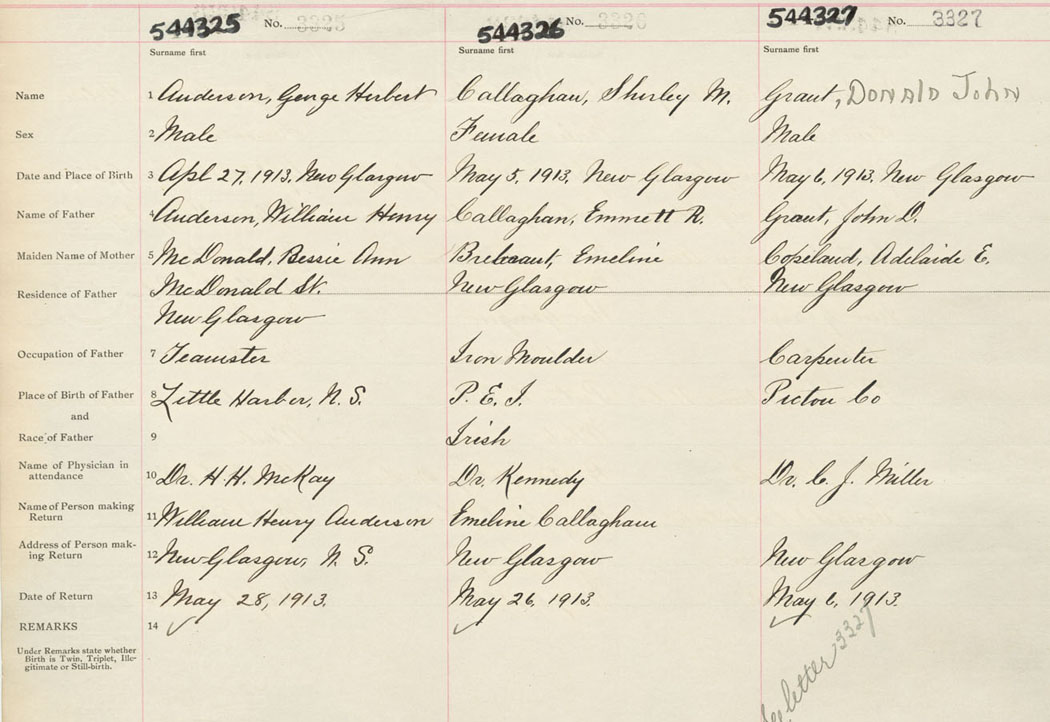 544325 No. 3325 544326 No. 3326 544327 No. 3327
Surname first Surname first Surname first
Name 1 Anderson, George Herbert Callaghan, Shirley M. Grant, Donald John
Sex 2 Male Female Male
Date and Place of Birth 3 Apl 27, 1913, New Glasgow May 5, 1913, New Glasgow May 6, 1913, New Glasgow
Name of Father 4 Anderson, William Henry Callaghan, Emmett R. Grant, John D.
Maiden Name of Mother 5 McDonald, Bessie Ann Emeline Copeland, Adelaide E.
Residence of Father McDonald St. New Glasgow New Glasgow
New Glasgow
Occupation of Father 7 Teamster Iron Moulder Carpenter
Place of Birth of Father 8 Little Harbor, N. S. P. E. I. Pictou Co
and
Race of Father 9 Irish
Name of Physician in
attendance 10 Dr. H. H. McKay Dr. Kennedy Dr. C. J. Miller
Name of Person making
Return 11 William Henry Anderson Emeline Callaghan
Address of Person mak-
ing Return 12 New Glasgow, N. S. New Glasgow New Glasgow
Date of Return 13 May 28, 1913. May 26, 1913. May 6, 1913.
REMARKS 14
Under Remarks state whether
Birth is Twin, Triplet, Ille-
gitimate or Still-birth.
letter 3327